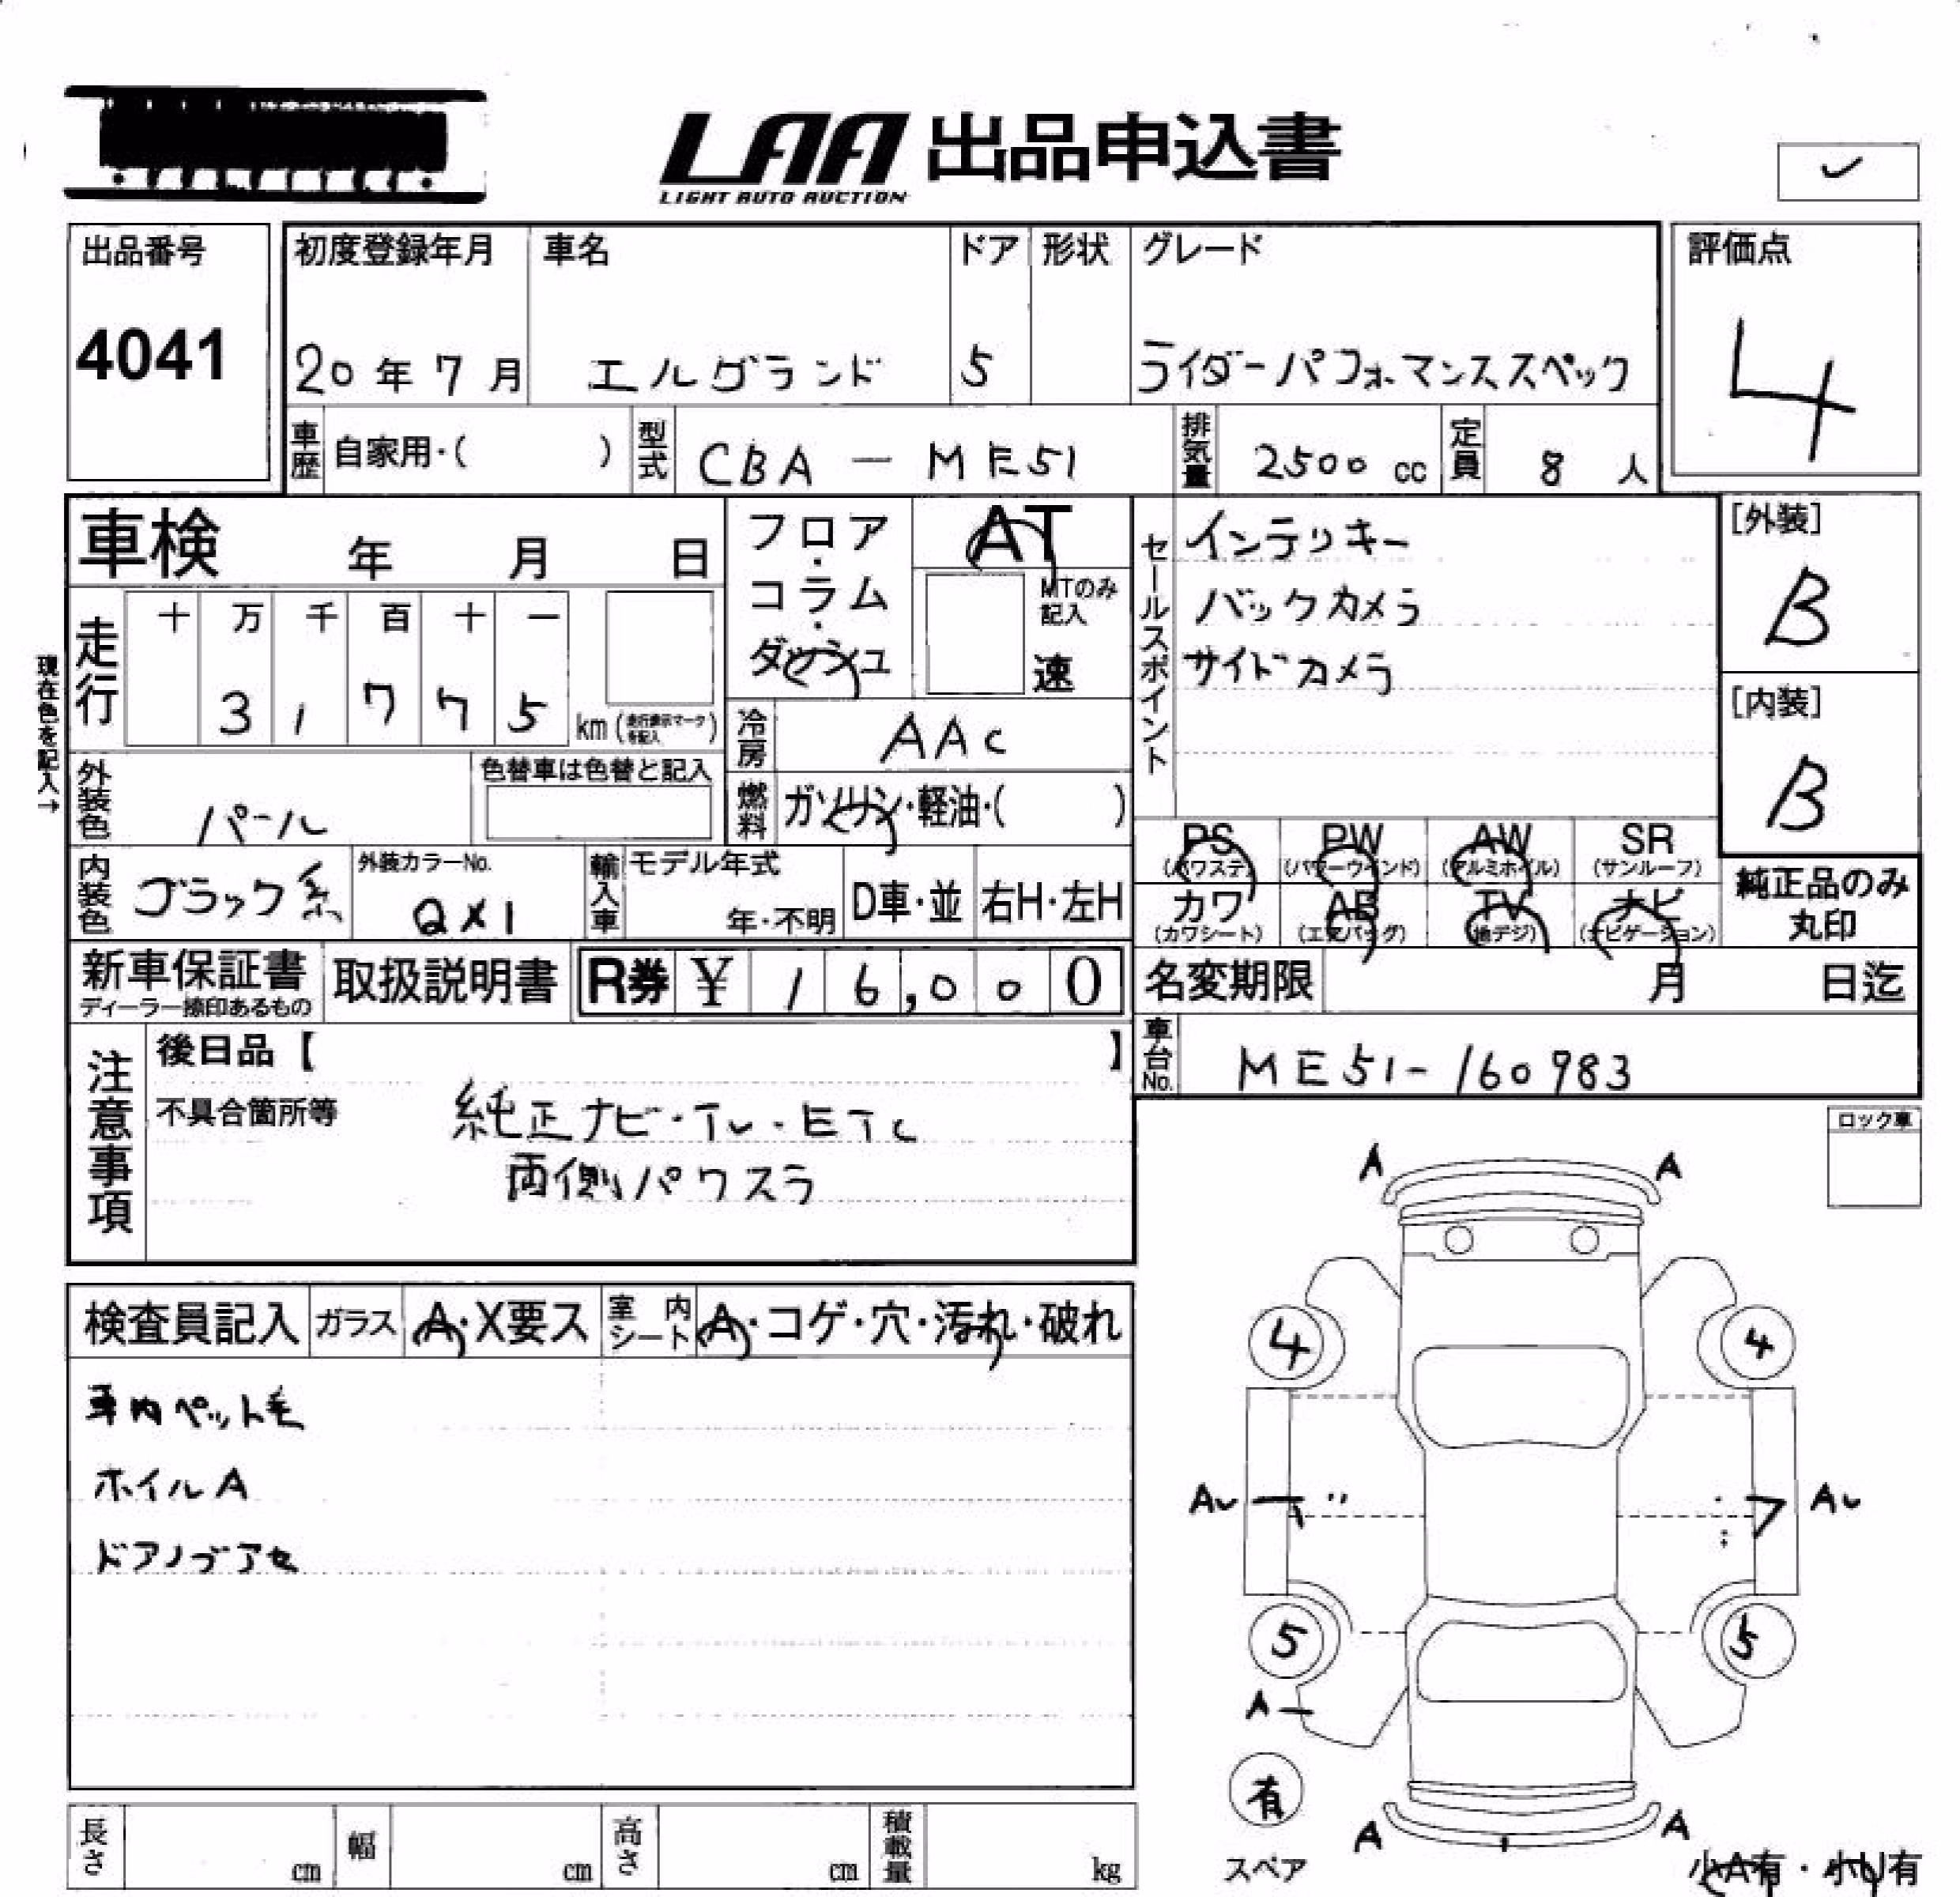 LAA 出品申込書
LIGHT AUTO AUCTION
出品番号
4041
初度登録年月
20年7月
車名
エルグランド
ドア
5
形状
グレード
ライダーパフォーマンススペック
評価点
4
車歴
自家用・( )
型式
CBA-ME51
排気量
2500 cc
定員
8 人
車検 年 月 日
フロア・コラム・ダッシュ
AT
MTのみ記入
速
セールスポイント
インテリキー
バックカメラ
サイドカメラ
[外装]
B
[内装]
B
現在色を記入→
走行
十 万 千 百 十 一
3 1 7 7 5 km
冷房
AAC
外装色
パール
色替車は色替と記入
燃料
ガソリン・軽油・( )
PS (パワステ)
PW (パワーウインド)
AW (アルミホイル)
SR (サンルーフ)
カワ (カワシート)
AB (エアバッグ)
TV (地デジ)
ナビ (ナビゲーション)
純正品のみ丸印
内装色
ブラック系
外装カラーNo.
QX1
輸入車
モデル年式
年・不明
D車・並
右H・左H
新車保証書
ディーラー捺印あるもの
取扱説明書
R券 ¥ 16,000
名変期限 月 日迄
車台No.
ME51-160983
注意事項
後日品【 】
不具合箇所等
純正ナビ・TV・ETC
両側パワスラ
ロック車
検査員記入
ガラス
A・X要ス
室内シート
A・コゲ・穴・汚れ・破れ
車内ペット毛
ホイルA
ドアノブアセ
A A
4 4
AU AU
5 5
A
有
スペア
A A
小A有・小U有
長さ cm
幅 cm
高さ cm
積載量 kg